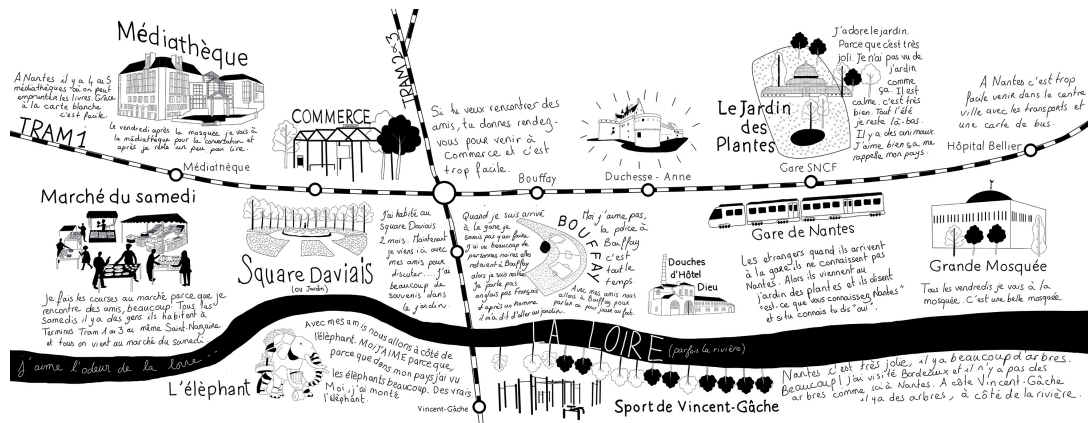 Médiathèque
A Nantes il y a 4 ou 5
médiathèques où on peut
emprunter les livres. Grâce
à la carte blanche
c'est facile.
Le vendredi après la mosquée, je vais à
la médiathèque pour la conversation et
après je reste un peu pour lire.
TRAM 1
Médiathèque
COMMERCE
TRAM 2 & 3
Si tu veux rencontrer des
amis, tu donnes rendez-
vous pour venir à
Commerce et c'est
trop facile.
Bouffay
Duchesse - Anne
Le Jardin
des
Plantes
J'adore le jardin.
Parce que c'est très
joli. Je n'ai pas vu de
jardin
comme
ça. Il est
calme. c'est très
bien. Tout l'été
je reste là-bas.
Il y a des animaux.
J'aime bien ça me
rappelle mon pays.
Gare SNCF
A Nantes c'est trop
facile venir dans le centre
ville avec les transports et
une carte de bus.
Hôpital Bellier
Marché du samedi
Je fais les courses au marché parce que je
rencontre des amis, beaucoup. Tous les
Samedis il y a des gens ils habitent à
Terminus Tram 1 ou 3 ou même Saint-Nazaire
et tous on vient au marché du samedi
Square Daviais
(ou Jardin)
J'ai habité au
Square Daviais
2 mois. Maintenant
je viens ici avec
mes amis pour
discuter... J'ai
beaucoup de
souvenis dans
le jardin.
Quand je suis arrivé
à la gare je
savais pas quoi faire
j'ai vu beaucoup de
personnes noires elles
restaient à Bouffay
alors je suis resté.
Je parle pas
anglais pas français
et après un homme
il m'a dit d'aller au jardin.
BOUFFAY
Moi j'aime pas,
la police à
Bouffay
c'est
tout le
temps.
Avec mes amis nous
allons à Bouffay pour
parler un peu, jouer au foot.
Douches
d'Hôtel
Dieu
Gare de Nantes
Les etrangers quand ils arrivent
à la gare ils ne connaissent pas
Nantes. Alors ils viennent au
jardin des plantes et ils disent
"est-ce que vous connaissez Nantes"
et si tu connais tu dis "oui".
Grande Mosquée
Tous les vendredis je vais à la
mosquée. C'est une belle mosquée.
LA LOIRE (parfois la rivière)
j'aime l'odeur de la loire...
L'élèphant
Avec mes amis nous allons à côté de
l'éléphant. Moi J'AIME parce que,
parce que dans mon pays j'ai vu
les éléphants beaucoup. Des vrais.
Moi, j'ai monté
l'éléphant.
Vincent-Gâche
Sport de Vincent-Gâche
Nantes c'est très jolie, il y a beaucoup d'arbres.
Beaucoup! j'ai visité Bordeaux et il n'y a pas des
arbres comme ici à Nantes. A côté Vincent-Gâche
il y a des arbres, à côté de la rivière.